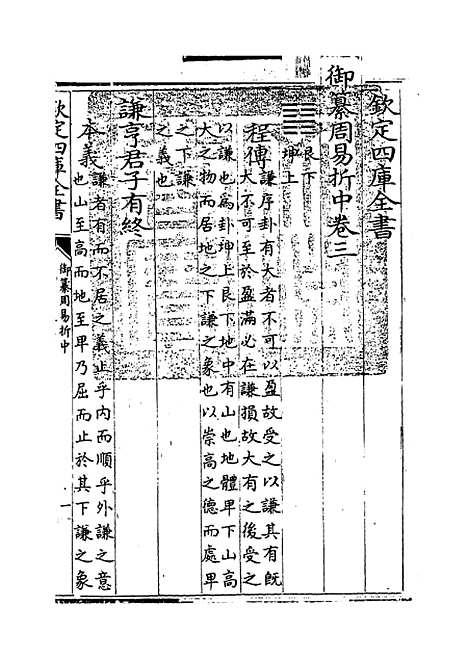 欽定四庫全書
御纂周易折中卷三
艮下
坤上
程傳謙序卦有大者不可以盈故受之以謙其有既
大不可至於盈滿必在謙損故大有之後受之
以謙也為卦坤上艮下地中有山也地體卑下山高
大之物而居地之下謙之象也以崇高之德而處卑
之下謙
之義也
謙亨君子有終
本義謙者有而不居之義止乎内而順乎外謙之意
也山至高而地至卑乃屈而止於其下謙之象
欽定四庫全書
御纂周易折中
一